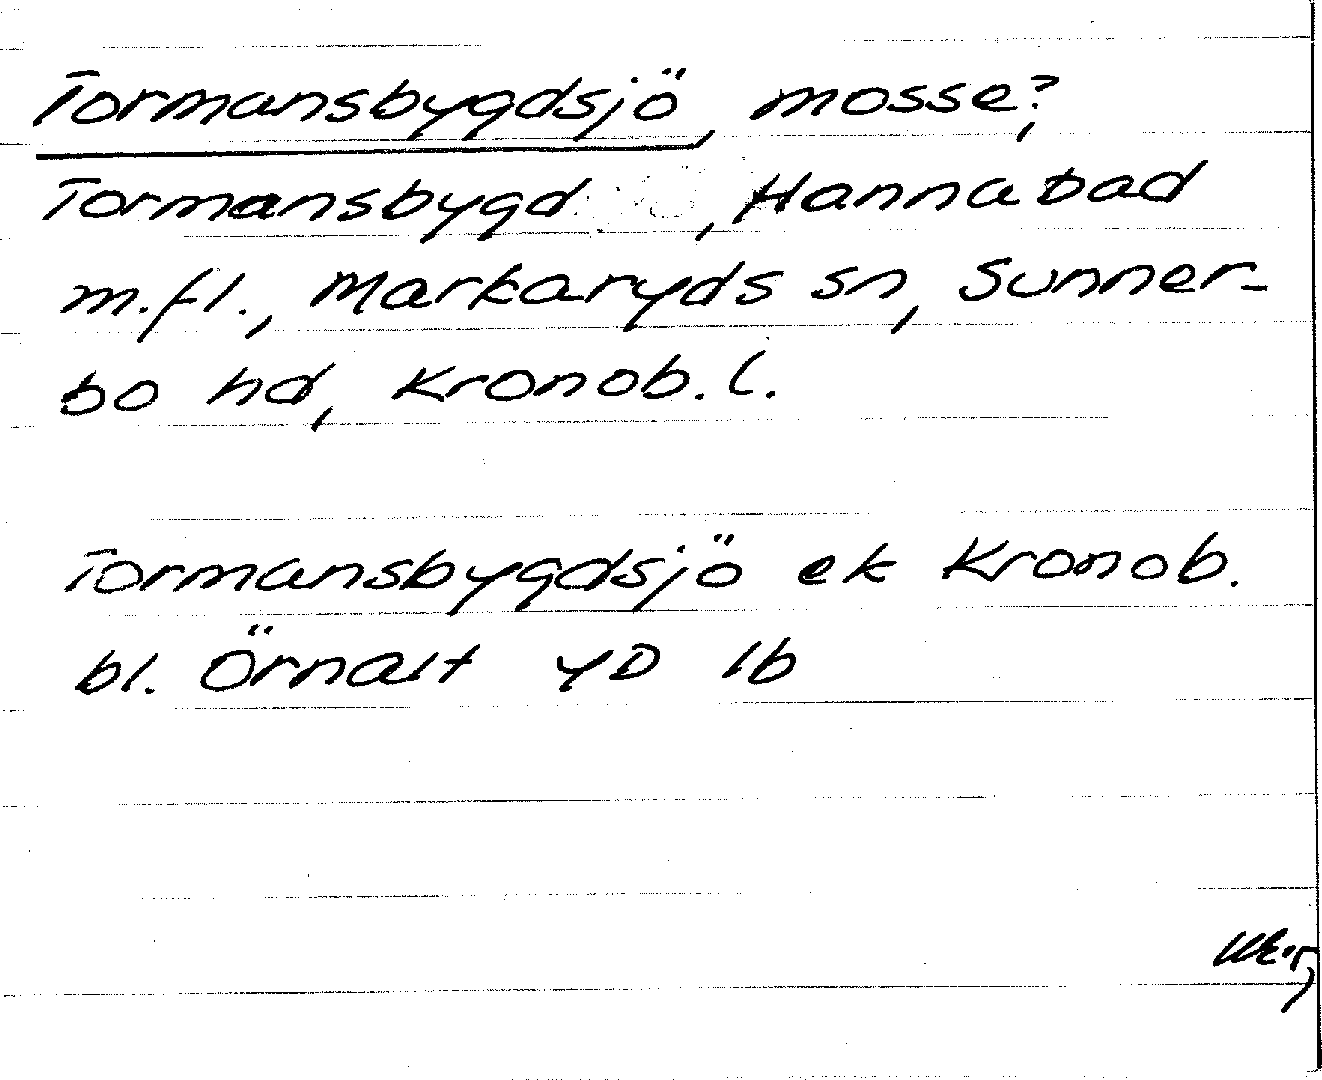 Tormansbygdsjö, mosse?,
Tormansbygd , Hannabad
m.fl., Markaryds sn, Sunner-
bo hd, Kronob. l.
Tormansbygdsjö ek Kronob.
bl. Örnalt YD 1b